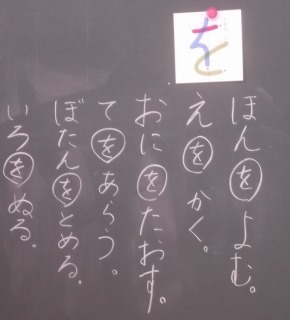 を
ほんをよむ。
えをかく。
おにをたおす。
てをあらう。
ぼたんをとめる。
いろをぬる。